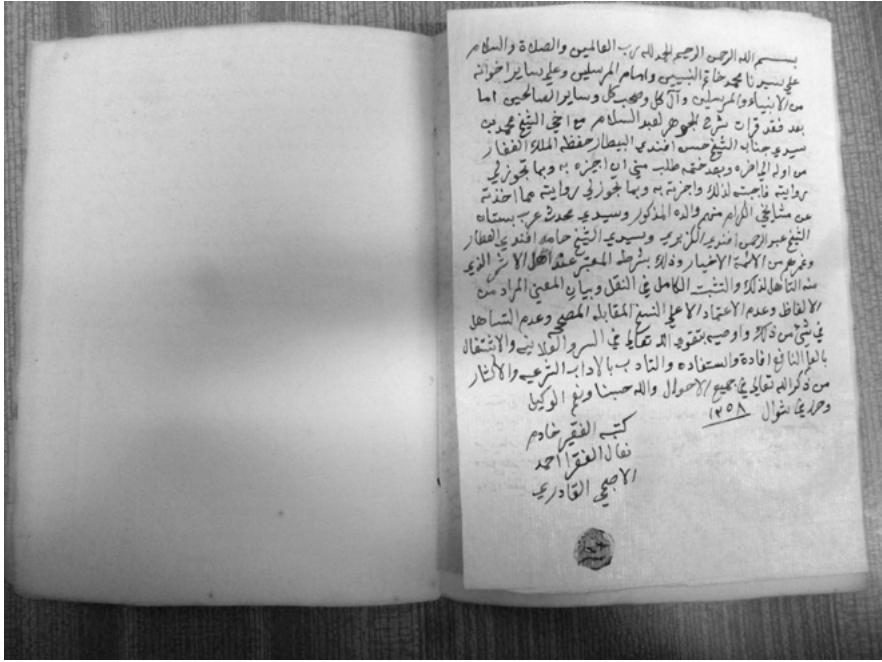 بسم الله الرحمن الرحيم الحمد لله رب العالمين والصلاة والسلام
على سيدنا محمد خاتم النبيين وامام المرسلين وعلى ساير اخوانه
من الانبياء والمرسلين وآل كل وصحب كل وساير الصالحين اما
بعد فقد قرات بشرح الجوهر لعبد السلام مع اخي الشيخ محمد بن
سيدي جناب الشيخ حسن افندي البيطار حفظه الملك الغفار
من اوله الى اخره وبعد ختمه طلب مني ان اجيزه به وبما تجوز لي
روايته فاجبته لذلك واجزته به وبما تجوز لي روايته مما اخذته
عن مشايخي الكرام منهم والده المذكور وسيدي محدث عرب بستان
الشيخ عبد الرحمن افندي الكزبري وسيدي الشيخ حامد افندي العطار
وغيرهم من الائمة الاخيار وذلك بشرطه المعتبر عند اهل الاثر الذي
منه التاهل لذلك والتثبت الكامل في النقل وبيان المعنى المراد من
الالفاظ وعدم الاعتماد الا على النسخ المقابله المصححه وعدم التساهل
في شئ من ذلك واوصيه بتقوى الله تعالى في السر والعلانيه والاشتغال
بالعلم النافع افادة واستفاده والتادب بالاداب الشرعيه والاكثار
من ذكر الله تعالى في جميع الاحوال والله حسبنا ونعم الوكيل
وحرر في شوال ١٢٥٨
كتبه الفقير خادم
نعال الفقرا احمد
القادري